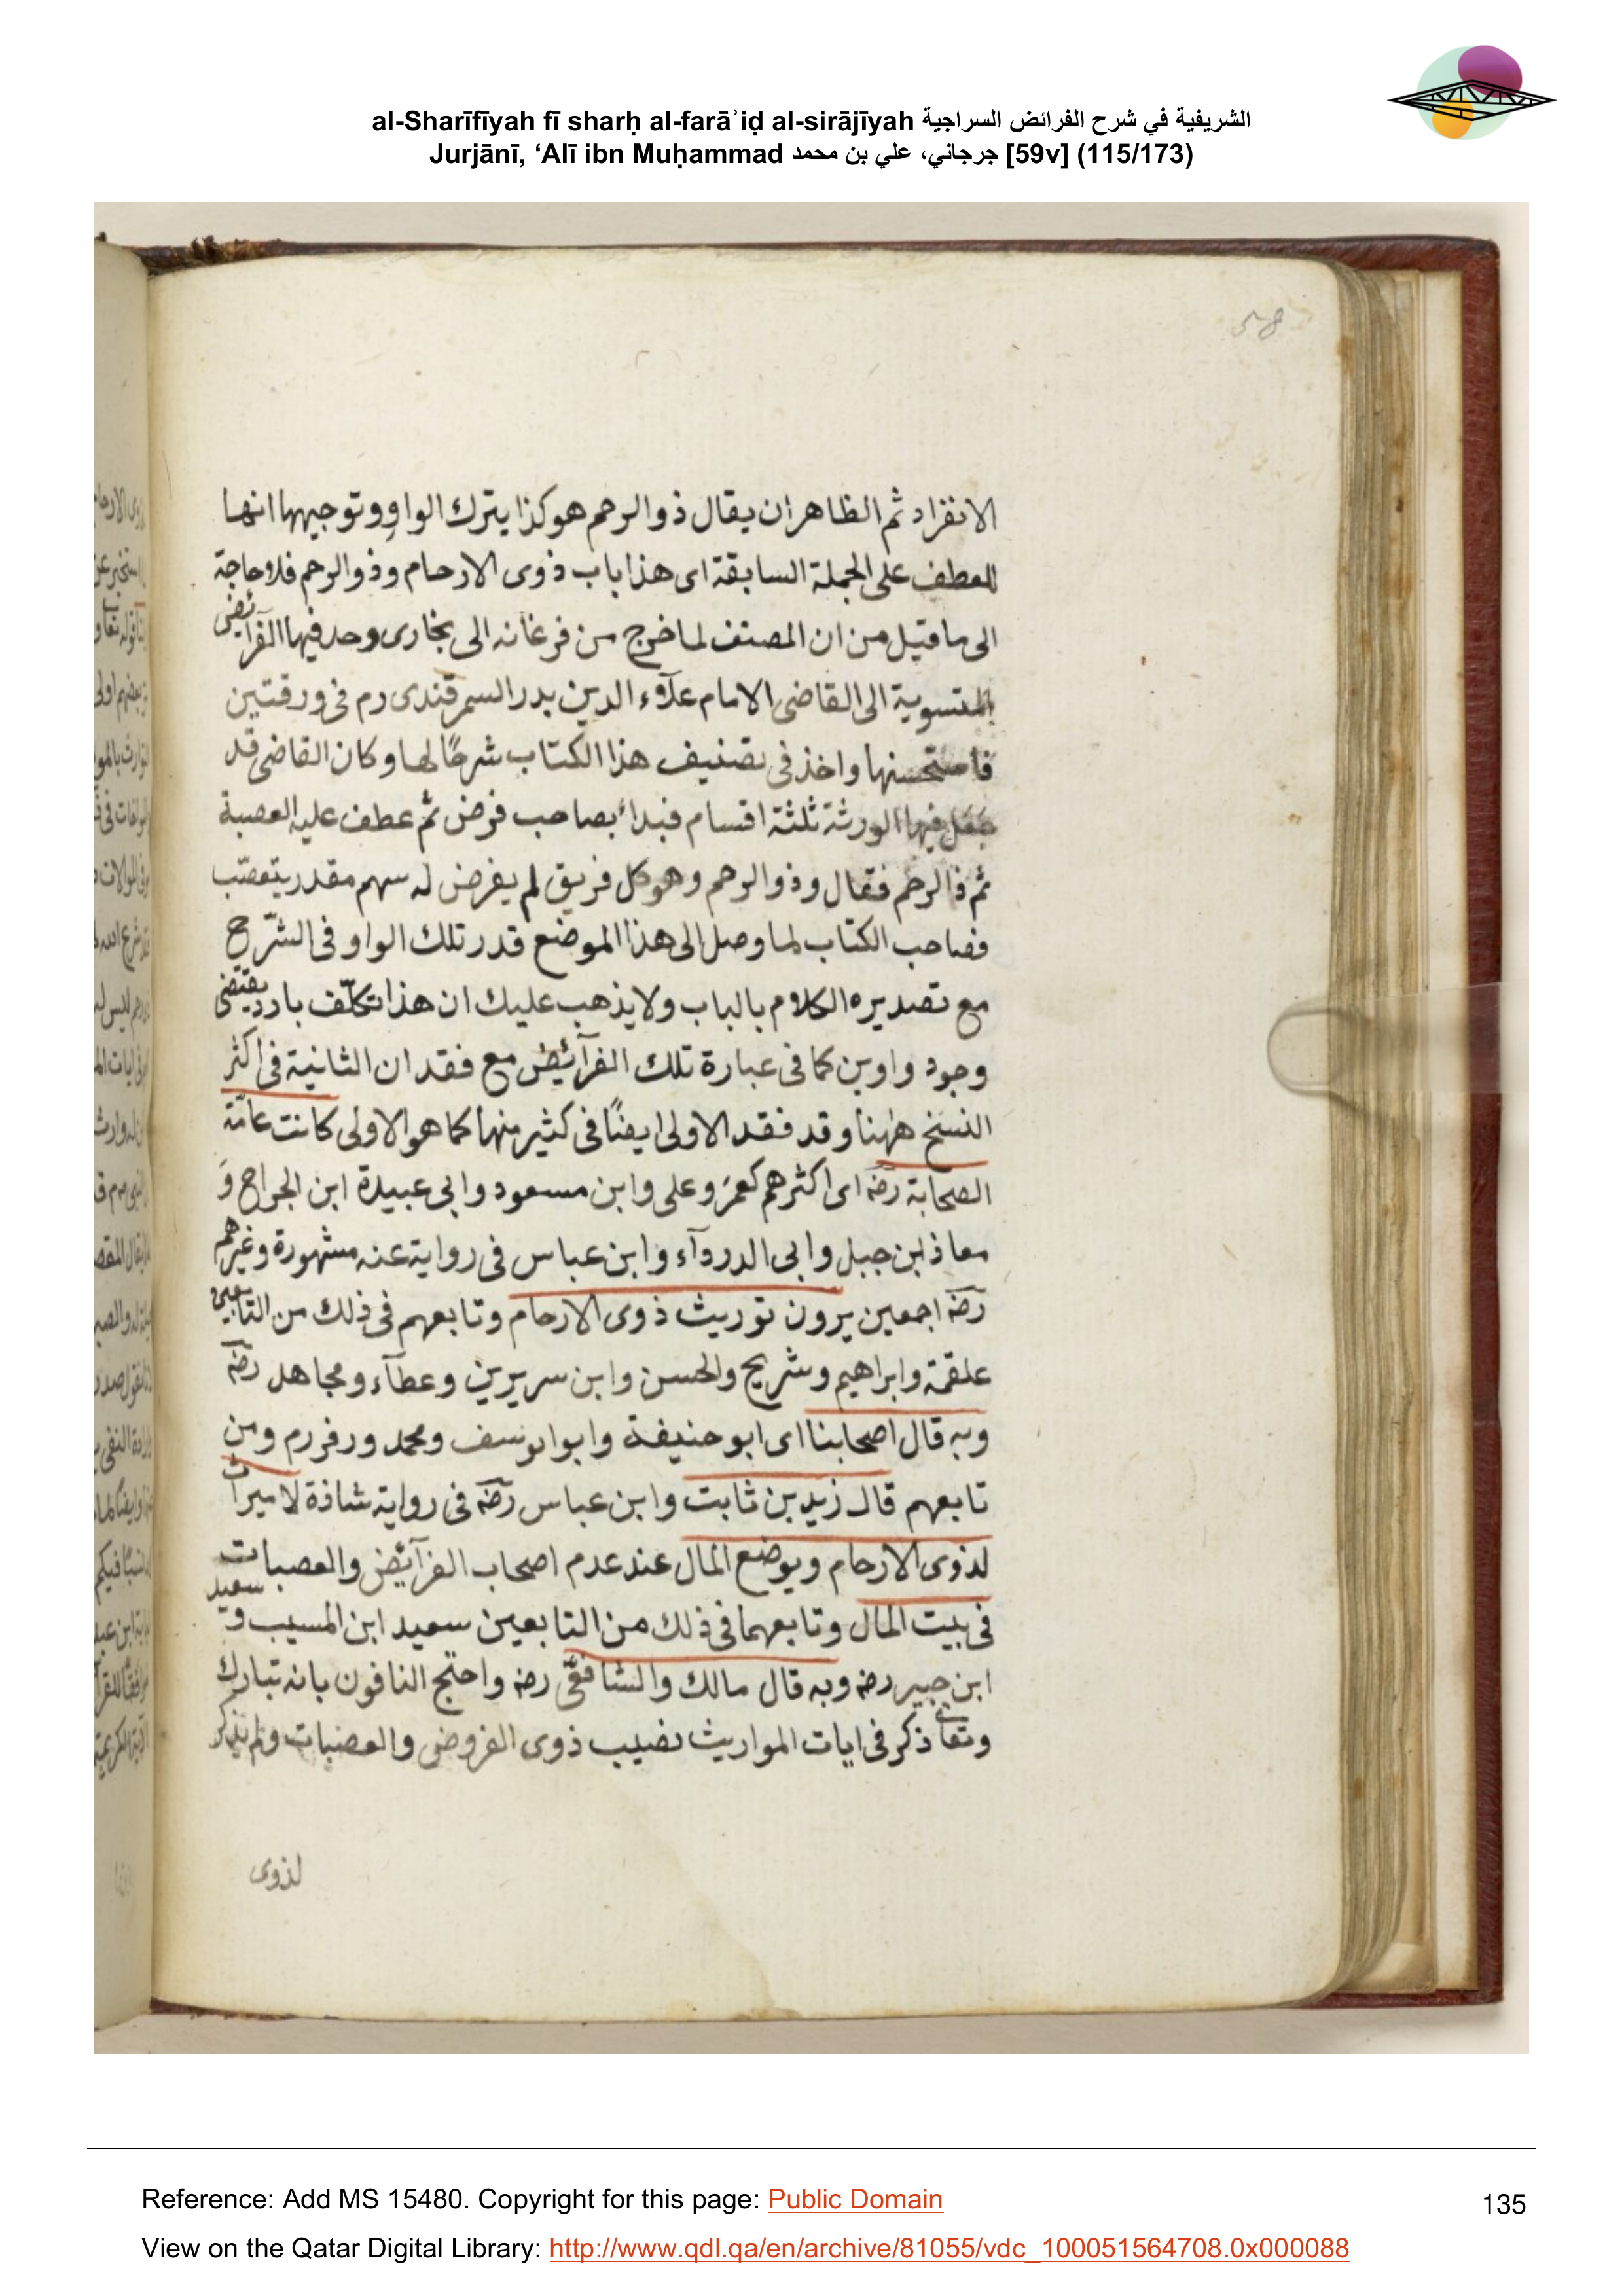 al-Sharīfīyah fī sharḥ al-farāʾiḍ al-sirājīyah الشريفية في شرح الفرائض السراجية
Jurjānī, ‘Alī ibn Muḥammad جرجاني، علي بن محمد [59v] (115/173)
58
الانفراد ثم الظاهر ان يقال ذو الرحم هو كذا يترك الواو وتوجيهها انها
للعطف على الجملة السابقة اى هذا باب ذوى الارحام وذو الرحم فلا حاجة
الى ما قيل من ان المصنف لما خرج من فرغانه الى بخارى وجد فيها الفرآئض
المنسوبة الى القاضى الامام علآء الدين بدر السمرقندى رم فى ورقتين
فاستحسنها واخذ فى تصنيف هذا الكتاب شرحًا لها وكان القاضى قد
جعل فيها الورثة ثلثة اقسام فبدأ بصاحب فرض ثم عطف عليه العصبة
ثم ذا الرحم فقال وذو الرحم وهو كل فريق لم يفرض له سهم مقدر يتعصّب
فصاحب الكتاب لما وصل الى هذا الموضع قدر تلك الواو فى الشّرح
مع تصديره الكلام بالباب ولا يذهب عليك ان هذا تكلّف بارد يقتضى
وجود واوين كما فى عبارة تلك الفرآئض مع فقدان الثانية فى اكثر
النسخ ههنا وقد فقد الاولى ايضًا فى كثير منها كما هو الاولى كانت عامّة
الصحابة رضه اى اكثرهم كعمر وعلى وابن مسعود وابى عبيدة ابن الجراح و
معاذ ابن جبل وابى الدردآء وابن عباس فى رواية عنه مشهورة وغيرهم
رضه اجمعين يرون توريث ذوى الارحام وتابعهم فى ذلك من التابعين
علقمة وابراهيم وشريح والحسن وابن سريرين وعطآء ومجاهد رضه
وبه قال اصحابنا اى ابو حنيفة وابو ايوسف ومحمد ورفر رم ومن
تابعهم قال زيد بن ثابت وابن عباس رضه فى رواية شاذة لا ميراث
لذوى الارحام ويوضع المال عند عدم اصحاب الفرآئض والعصبات
فى بيت المال وتابعهما فى ذلك من التابعين سعيد ابن المسيب و سعيد
ابن جبير رضه وبه قال مالك والشافعّى رضه واحتج النافون بانه تبارك
وتعا ذكر فى ايات المواريث نصيب ذوى الفروض والعصبات ولم يذكر
لذوى
Reference: Add MS 15480. Copyright for this page: Public Domain
135
View on the Qatar Digital Library: http://www.qdl.qa/en/archive/81055/vdc_100051564708.0x000088